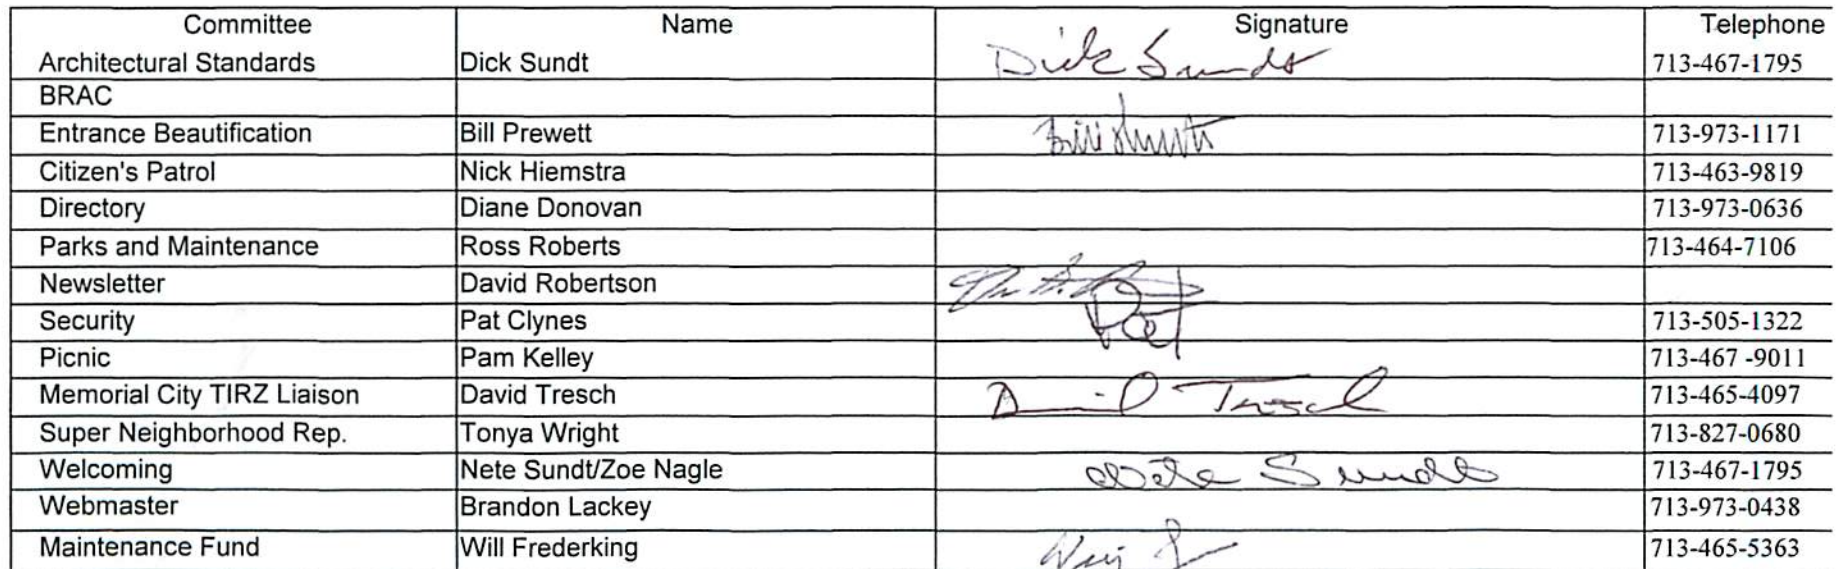 Committee Name Signature Telephone
Architectural Standards Dick Sundt Dick Sundt 713-467-1795
BRAC
Entrance Beautification Bill Prewett Bill 713-973-1171
Citizen's Patrol Nick Hiemstra 713-463-9819
Directory Diane Donovan 713-973-0636
Parks and Maintenance Ross Roberts 713-464-7106
Newsletter David Robertson
Security Pat Clynes Pat 713-505-1322
Picnic Pam Kelley 713-467 -9011
Memorial City TIRZ Liaison David Tresch David Tresch 713-465-4097
Super Neighborhood Rep. Tonya Wright 713-827-0680
Welcoming Nete Sundt/Zoe Nagle Nete Sundt 713-467-1795
Webmaster Brandon Lackey 713-973-0438
Maintenance Fund Will Frederking 713-465-5363